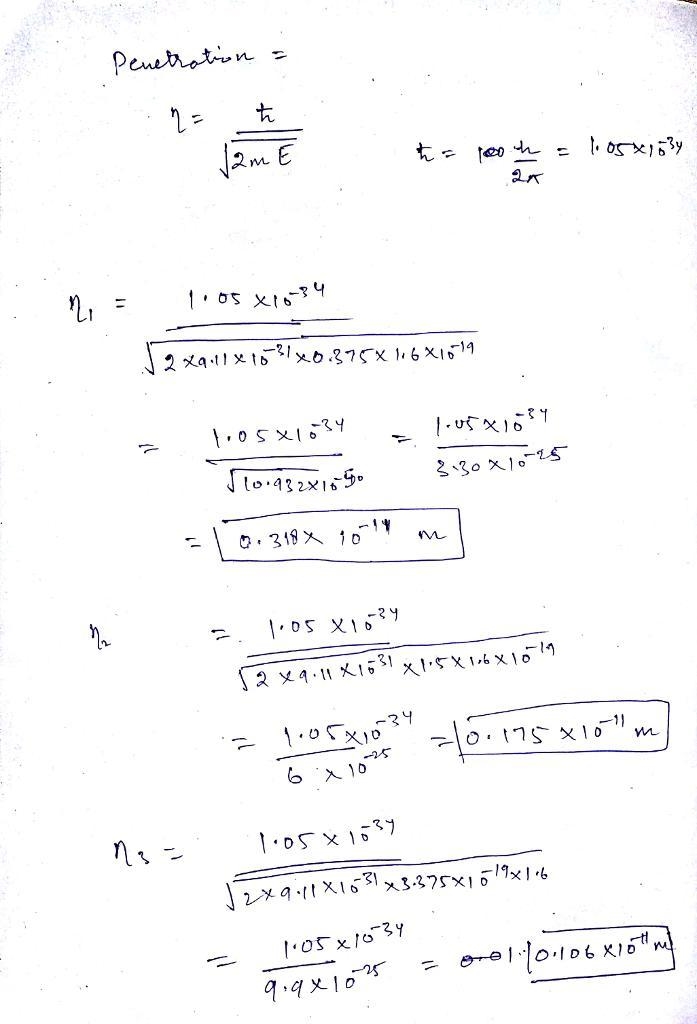 Penetration =
η = ħ / √2mE
ħ = h / 2π = 1.05×10^-34
η1 = 1.05 ×10^-34 / √2×9.11×10^-31×0.375×1.6×10^-19
= 1.05×10^-34 / √10.932×10^-50 = 1.05×10^-34 / 3.30×10^-25
= 0.318× 10^-11 m
η2 = 1.05 ×10^-34 / √2×9.11×10^-31×1.5×1.6×10^-19
= 1.05×10^-34 / 6×10^-25 = 0.175 ×10^-11 m
η3 = 1.05×10^-34 / √2×9.11×10^-31×3.375×10^-19×1.6
= 1.05×10^-34 / 9.9×10^-25 = 0.106 ×10^-11 m